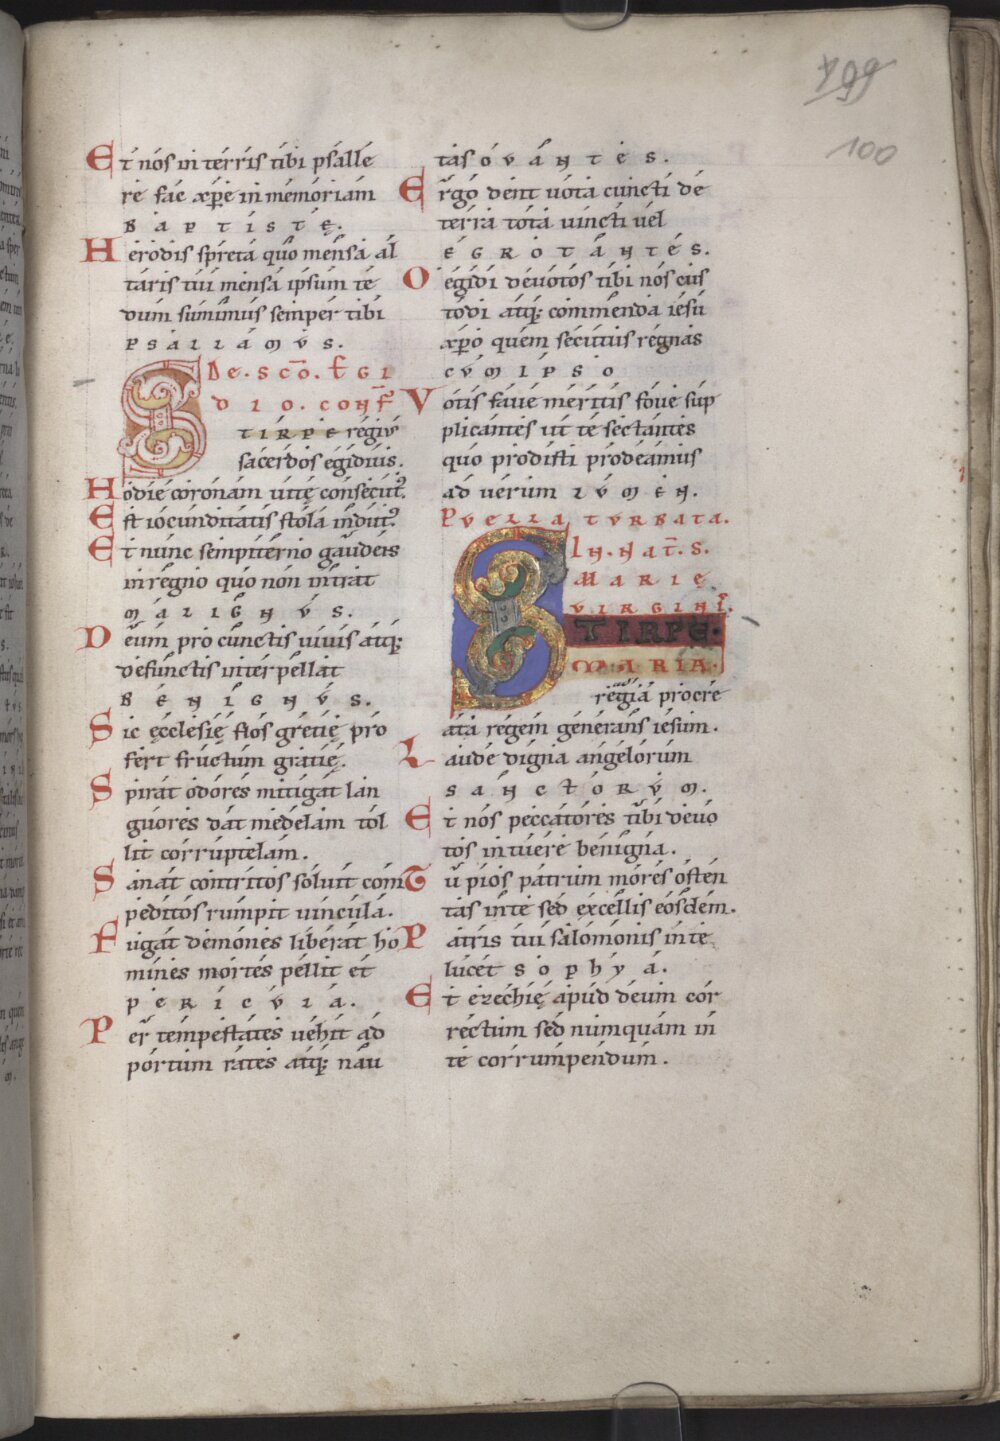 199
100
Et nos in terris tibi psalle
re fac xp̄e in memoriam
BAPTISTĘ.
Herodis spreta quo mensa al
taris tui mensa ipsum te
dum sumimus semper tibi
PSALLAMUS.
DE. SC̄O. EGI
DIO. CONF̄
STIRPE regius
sacerdos egidius.
Hodie coronam uitę consecut᷒.
Est iocunditatis stola indut᷒.
Et nunc sempiterno gaudens
in regno quo non intrat
MALIGNUS.
Deum pro cunctis uiuis atq;
defunctis interpellat
BENIGNUS.
Sic ęcclesię flos gretię pro
fert fructum gratię.
Spirat odores mitigat lan
guores dat medelam tol
lit corruptelam.
Sanat contritos soluit com
peditos rumpit uincula.
Fugat demones liberat ho
mines mortes pellit et
PERICULA.
Per tempestates uehit ad
portum rates atq; nau
tas OVANTES.
Ergo dent uota cuncti de
terra tota uincti uel
EGROTANTES.
O egidi deuotos tibi nos cus
todi atq; commenda iesu
xp̄o quem secutus regnas
CUM IPSO
Votis faue meritis foue sup
plicantes ut te sectantes
quo prodisti prodeamus
ad uerum LUMEN.
PUELLA TURBATA.
IN. NAT̄. S.
MARIĘ
VIRGINI.
STIRPE.
MARIA.
regia procre
ata regem generans iesum.
Laude digna angelorum
SANCTORUM.
Et nos peccatores tibi deuo
tos intuere benigna.
Tu pios patrum mores osten
tas in te sed excellis eosdem.
Patris tui salomonis in te
lucet SOPHYA.
Et ezechię apud deum cor
rectum sed numquam in
te corrumpendum.